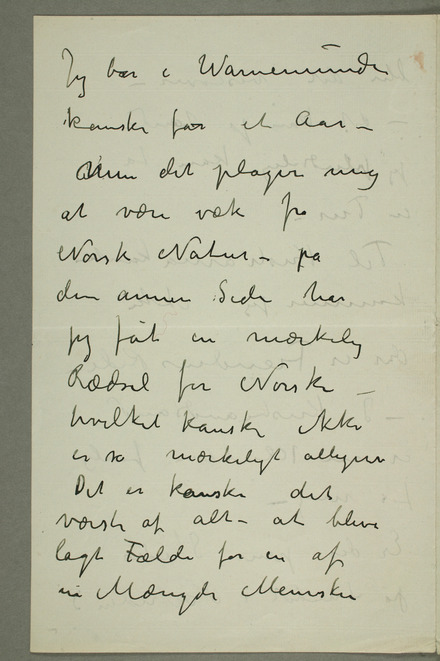 Jeg bor i Warnemünde
kanske for et Aar –
Men det plager mig
at være væk fra
Norsk Natur – på
den annen Side har
jeg fåt en mærkelig
Rædsel for Norske –
hvilket kanske ikke
er så mærkeligt alligevel
Det er kanske det
værste af alt – at blive
lagt Fælde for en af
en Mængde Mennesker